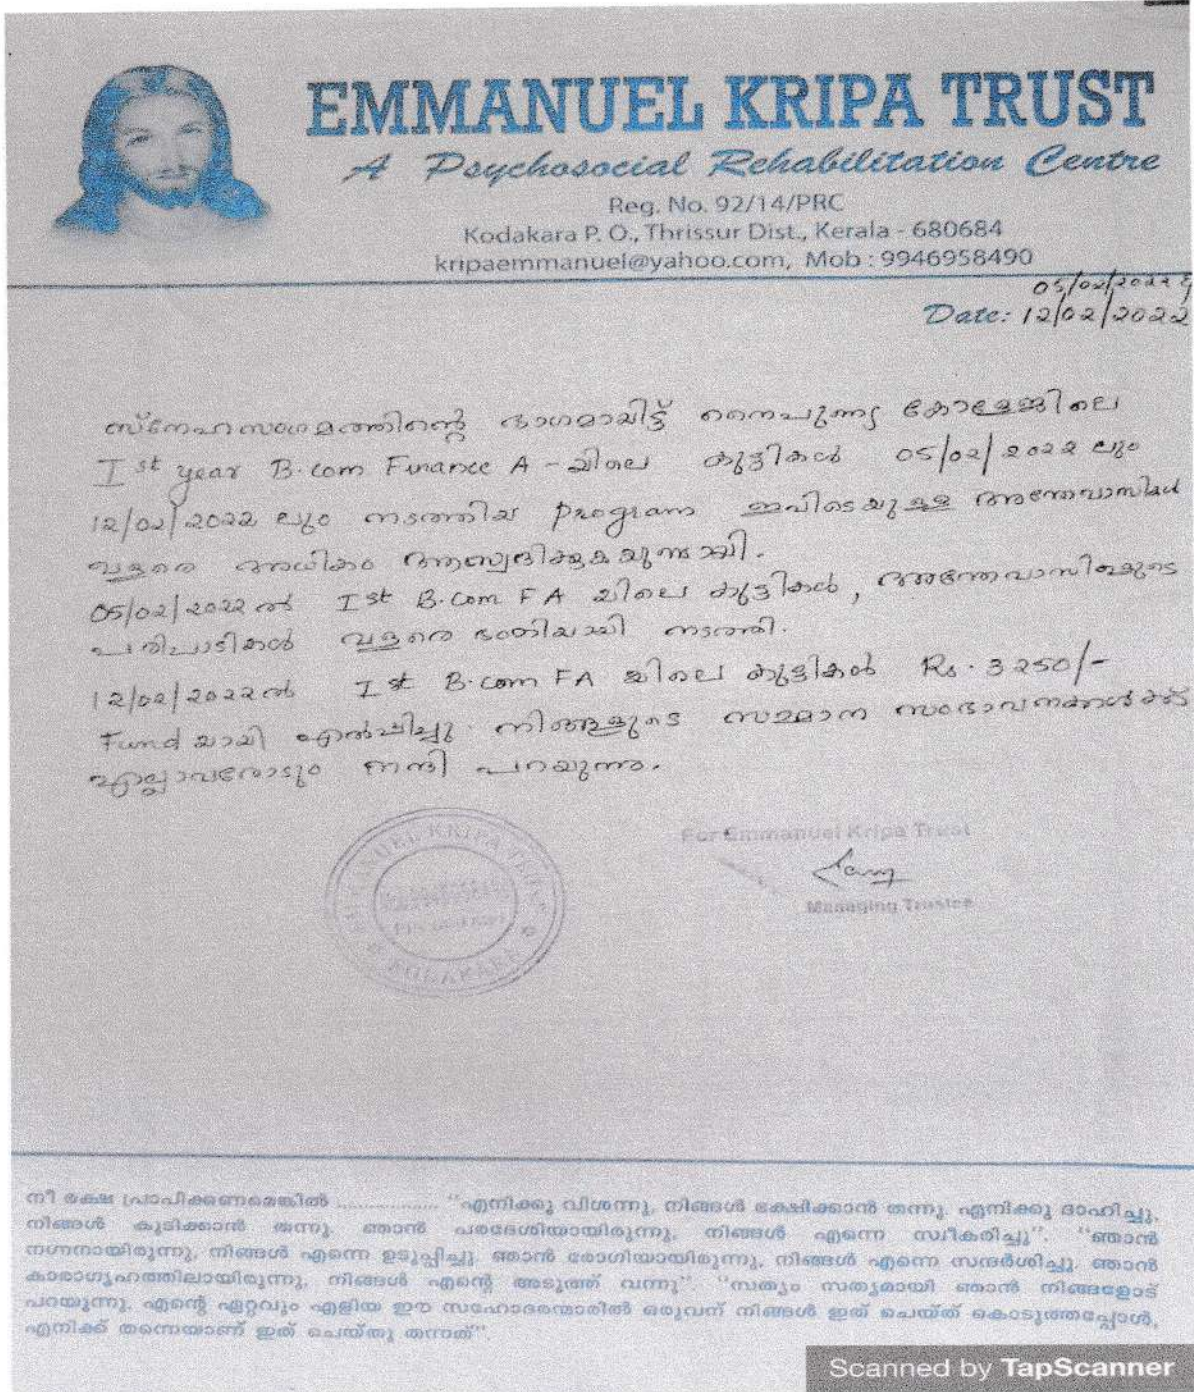 EMMANUEL KRIPA TRUST
A Psychosocial Rehabilitation Centre
Reg. No. 92/14/PRC
Kodakara P. O., Thrissur Dist., Kerala - 680684
kripaemmanuel@yahoo.com, Mob : 9946958490
05/02/2022 &
Date: 12/02/2022
സ്നേഹസംഗമത്തിന്റെ ഭാഗമായിട്ട് നൈപുണ്യ കോളേജിലെ
Ist year B.com Finance A - യിലെ കുട്ടികൾ 05/02/2022 ലും
12/02/2022 ലും നടത്തിയ program ഇവിടെയുള്ള അന്തേവാസികൾ
വളരെ അധികം ആസ്വദിക്കുകയുണ്ടായി.
05/02/2022 ൽ Ist B.Com FA യിലെ കുട്ടികൾ, അന്തേവാസികളുടെ
പരിപാടികൾ വളരെ ഭംഗിയായി നടത്തി.
12/02/2022 ൽ Ist B.com FA യിലെ കുട്ടികൾ Rs. 3250/-
Fund യായി ഏൽപ്പിച്ചു. നിങ്ങളുടെ സംഭാവനകൾക്ക്
എല്ലാവരോടും നന്ദി പറയുന്നു.
EMMANUEL KRIPA TRUST
KODAKARA
For Emmanuel Kripa Trust
Managing Trustee
നീ രക്ഷ പ്രാപിക്കണമെങ്കിൽ ................. "എനിക്കു വിശന്നു, നിങ്ങൾ ഭക്ഷിക്കാൻ തന്നു. എനിക്കു ദാഹിച്ചു,
നിങ്ങൾ കുടിക്കാൻ തന്നു. ഞാൻ പരദേശിയായിരുന്നു, നിങ്ങൾ എന്നെ സ്വീകരിച്ചു". "ഞാൻ
നഗ്നനായിരുന്നു, നിങ്ങൾ എന്നെ ഉടുപ്പിച്ചു. ഞാൻ രോഗിയായിരുന്നു, നിങ്ങൾ എന്നെ സന്ദർശിച്ചു. ഞാൻ
കാരാഗൃഹത്തിലായിരുന്നു, നിങ്ങൾ എന്റെ അടുത്ത് വന്നു". "സത്യം സത്യമായി ഞാൻ നിങ്ങളോട്
പറയുന്നു, എന്റെ ഏറ്റവും എളിയ ഈ സഹോദരന്മാരിൽ ഒരുവന് നിങ്ങൾ ഇത് ചെയ്ത് കൊടുത്തപ്പോൾ,
എനിക്ക് തന്നെയാണ് ഇത് ചെയ്തു തന്നത്".
Scanned by TapScanner